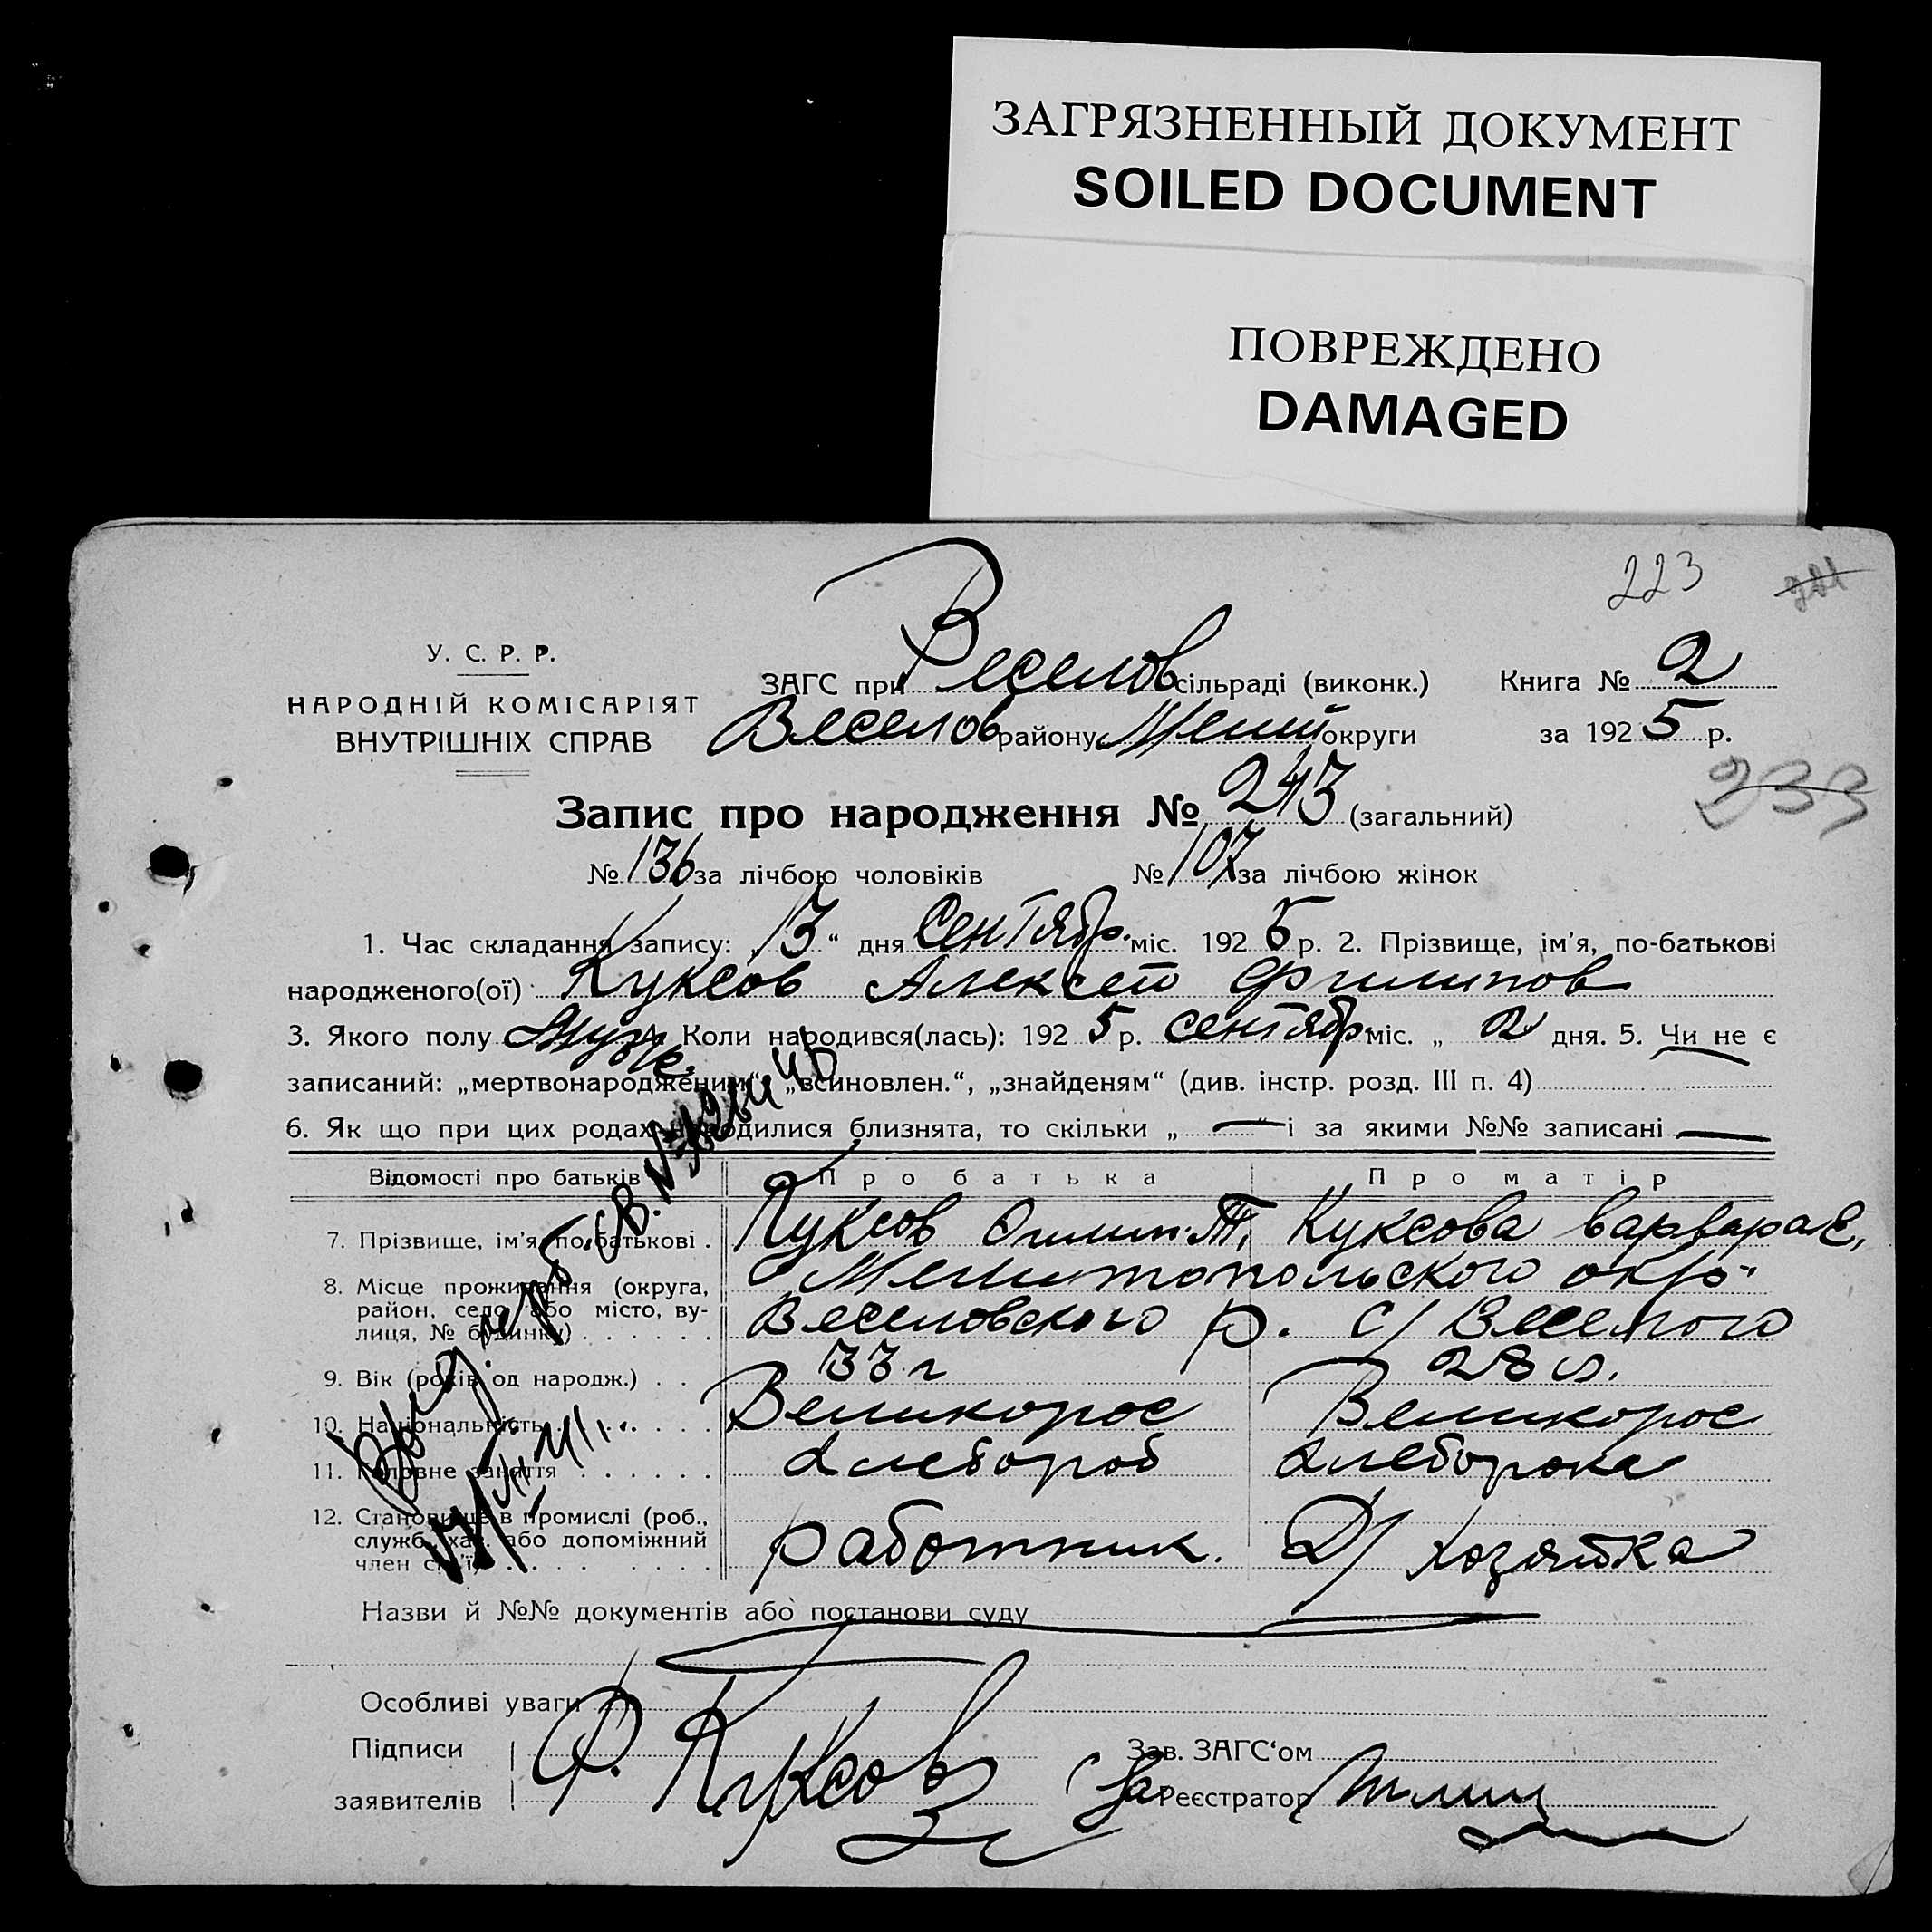 ЗАГРЯЗНЕННЫЙ ДОКУМЕНТ
SOILED DOCUMENT
ПОВРЕЖДЕНО
DAMAGED
223
У. С. Р. Р.
НАРОДНІЙ КОМІСАРІЯТ
ВНУТРІШНІХ СПРАВ
ЗАГС при Веселов сільраді (виконк.) Книга № 2
Веселов району Мелит округи за 1925 р.
233
Запис про народження № 243 (загальний)
№ 136 за лічбою чоловіків № 107 за лічбою жінок
1. Час складання запису: „13“ дня Сентябр. міс. 1925 р. 2. Прізвище, ім'я, по-батькові
народженого(ої) Куксов Алексей Филипов
3. Якого полу Муж. 4. Коли народився(лась): 1925 р. сентябр міс. „ 2 дня. 5. Чи не є
записаний: „мертвонародженим“, „всиновлен.“, „знайденям“ (див. інстр. розд. III п. 4)
6. Як що при цих родах народилися близнята, то скільки „ — “ і за якими №№ записані —
Відомості про батьків Про батька Про матір
7. Прізвище, ім'я, по-батькові . Куксов Филип. Т. Куксова Варвара Е.
8. Місце проживання (округа, Мелитопольского окр.
район, село або місто, ву-
лиця, № будинку) . . . . . . Веселовского р. с/ Веселого
9. Вік (років од народж.) . . 33 г 28 л.
10. Національність . . . . . . Великорос Великорос
11. Головне заняття . . . . . . Хлебороб Хлеборока
12. Становище в промислі (роб.,
служб., хаз. або допоміжний работник. Д/ хозяйка
член сім'ї) . . . . . . . .
Назви й №№ документів або постанови суду
Особливі уваги
Підписи Ф. Куксов Зав. ЗАГС‘ом
заявителів За Реєстратор